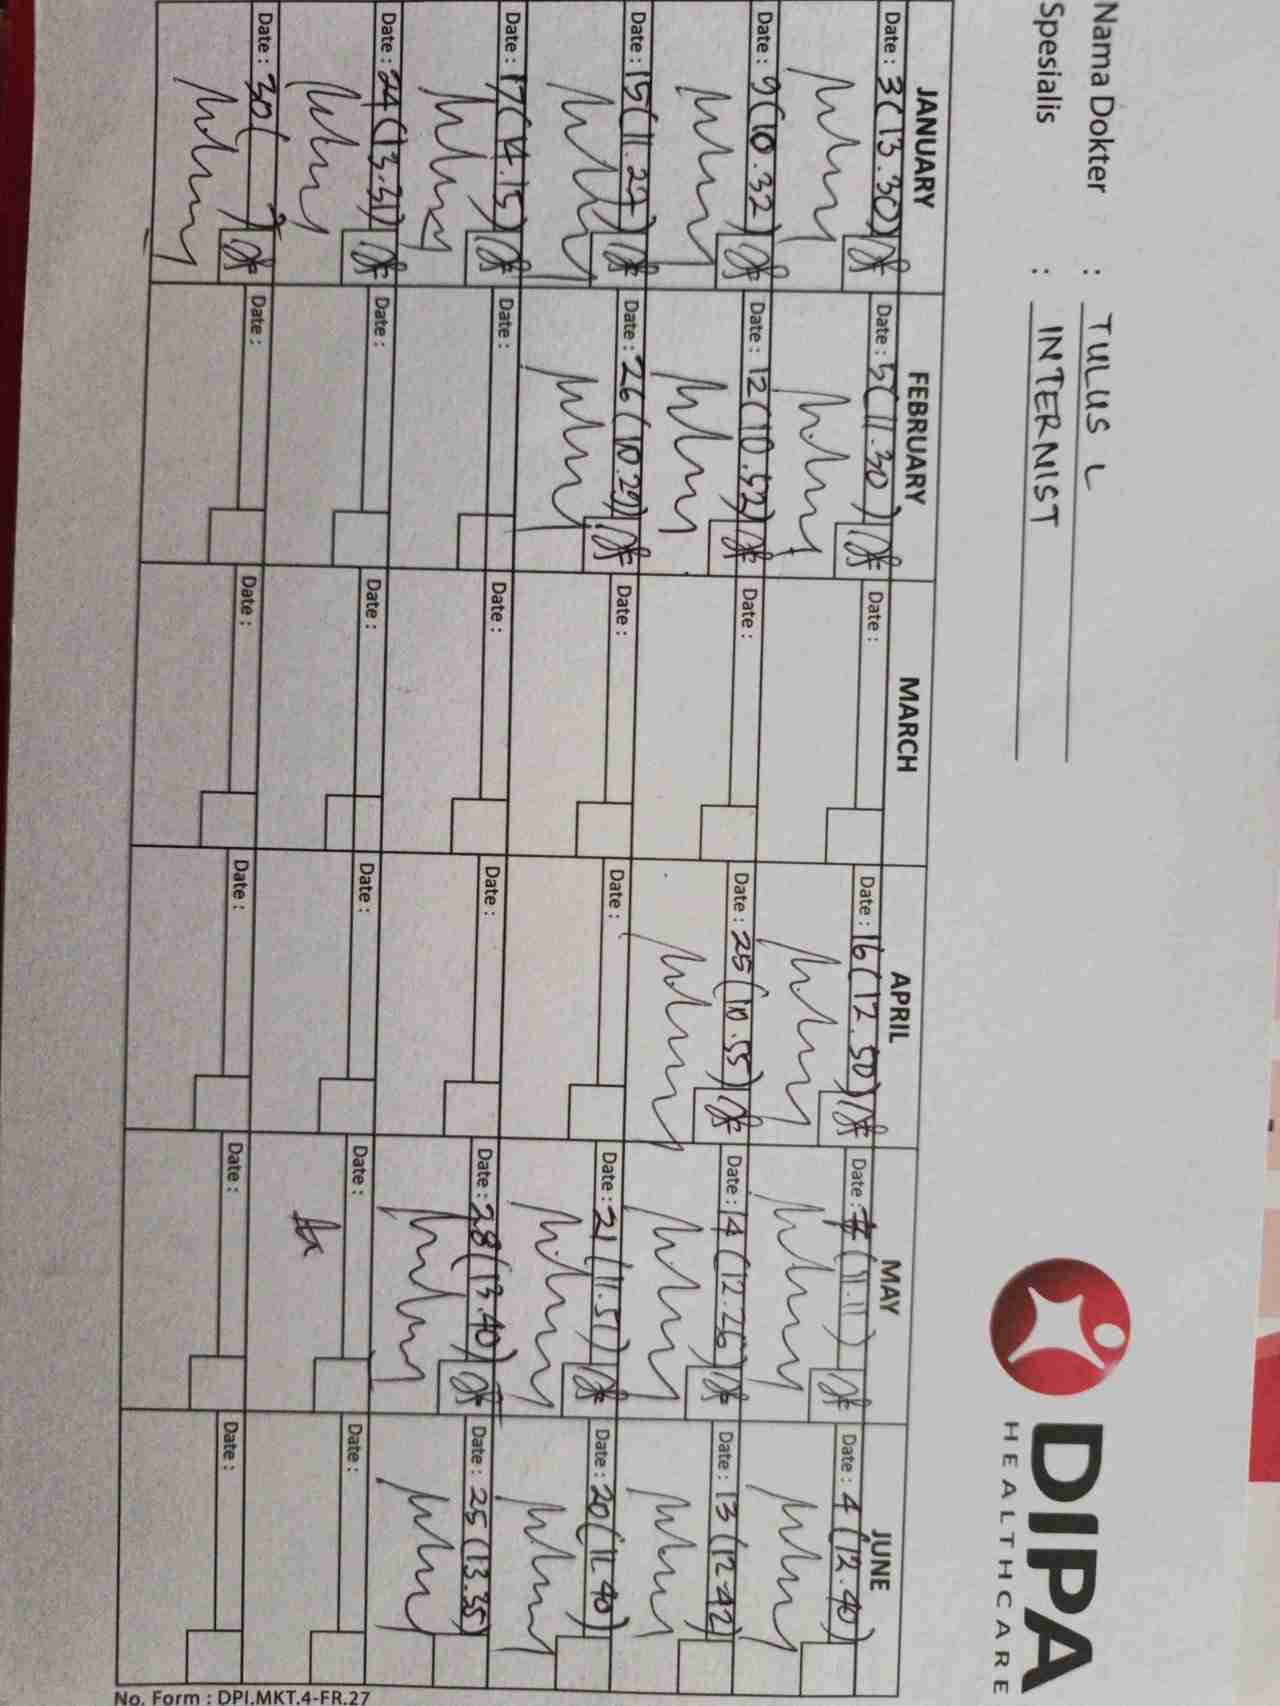 Nama Dokter : TULUS L
Spesialis : INTERNIST
DIPA
HEALTHCARE
JANUARY FEBRUARY MARCH APRIL MAY JUNE
Date : 3 (13.30) Date : 5 (11.30) Date : Date : 16 (12.50) Date : 7 (11.11) Date : 4 (12.40)
Date : 9 (10.32) Date : 12 (10.52) Date : Date : 25 (10.55) Date : 14 (12.26) Date : 13 (12.42)
Date : 15 (11.27) Date : 26 (10.29) Date : Date : Date : 21 (11.51) Date : 20 (11.40)
Date : 17 (14.15) Date : Date : Date : Date : 28 (13.40) Date : 25 (13.35)
Date : 24 (13.31) Date : Date : Date : Date : Date :
Date : 30 ( ) Date : Date : Date : Date : Date :
No. Form : DPI.MKT.4-FR.27